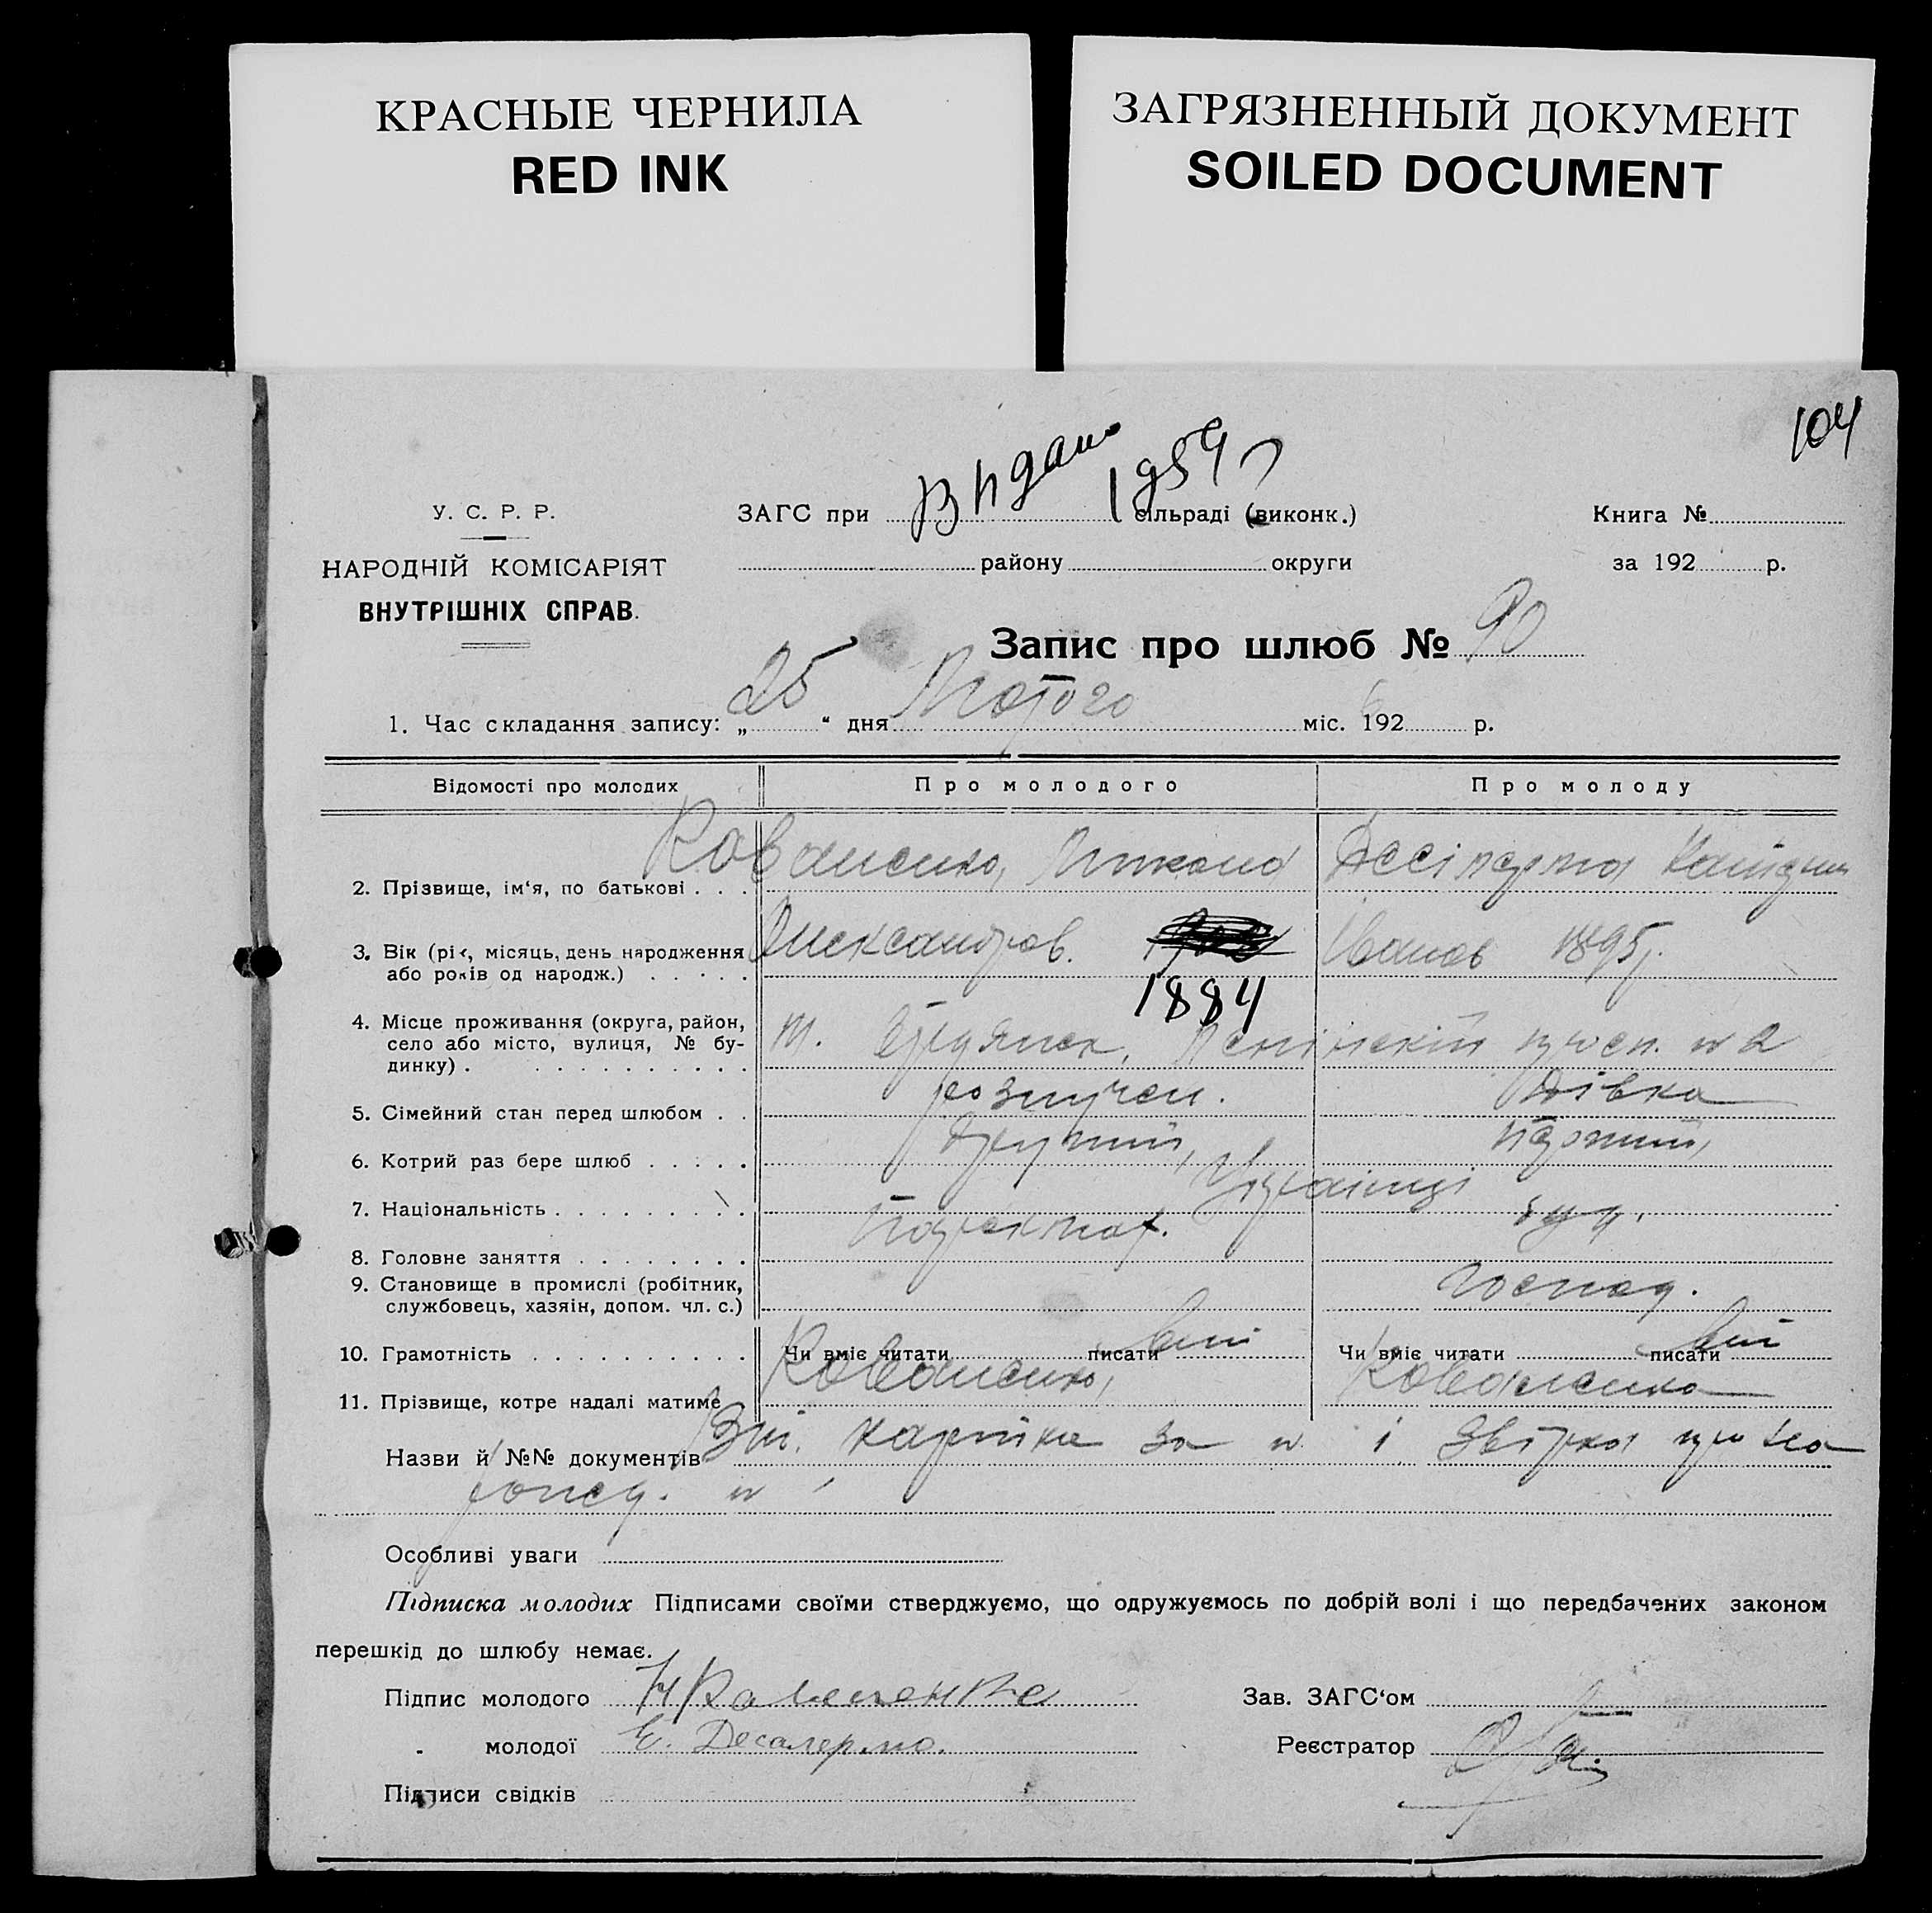 КРАСНЫЕ ЧЕРНИЛА
RED INK
ЗАГРЯЗНЕННЫЙ ДОКУМЕНТ
SOILED DOCUMENT
104
Видано 1959
У. С. Р. Р.
НАРОДНІЙ КОМІСАРІЯТ
ВНУТРІШНІХ СПРАВ.
ЗАГС при сільраді (виконк.)
району округи
Книга №
за 192 р.
Запис про шлюб № 90
1. Час складання запису: „ 25 “ дня Лютого міс. 1926 р.
Відомості про молодих
Про молодого
Про молоду
2. Прізвище, ім‘я, по батькові . . .
Коваленко,
3. Вік (рік, місяць, день народження
або років од народж.) . . . . .
Александров. 1884
Іванов 1895 р.
4. Місце проживання (округа, район,
село або місто, вулиця, № бу-
динку) . . . . . . . . . . .
м. Бердянск, Ленінскій просп. № 2
5. Сімейний стан перед шлюбом . .
розлучен.
дівка
6. Котрий раз бере шлюб . . . . .
другий,
перший,
7. Національність . . . . . . . . .
Українці
8. Головне заняття . . . . . . . .
9. Становище в промислі (робітник,
службовець, хазяін, допом. чл. с.)
господ.
10. Грамотність . . . . . . . . . .
Чи вміє читати писати вміє
Чи вміє читати писати вміє
11. Прізвище, котре надалі матиме
Коваленко,
Коваленко
Назви й №№ документів
картка за № і звірка про
№
Особливі уваги
Підписка молодих Підписами своїми стверджуємо, що одружуємось по добрій волі і що передбачених законом
перешкід до шлюбу немає.
Підпис молодого
Зав. ЗАГС‘ом
„ молодої Е. Десалермо.
Реєстратор
Підписи свідків